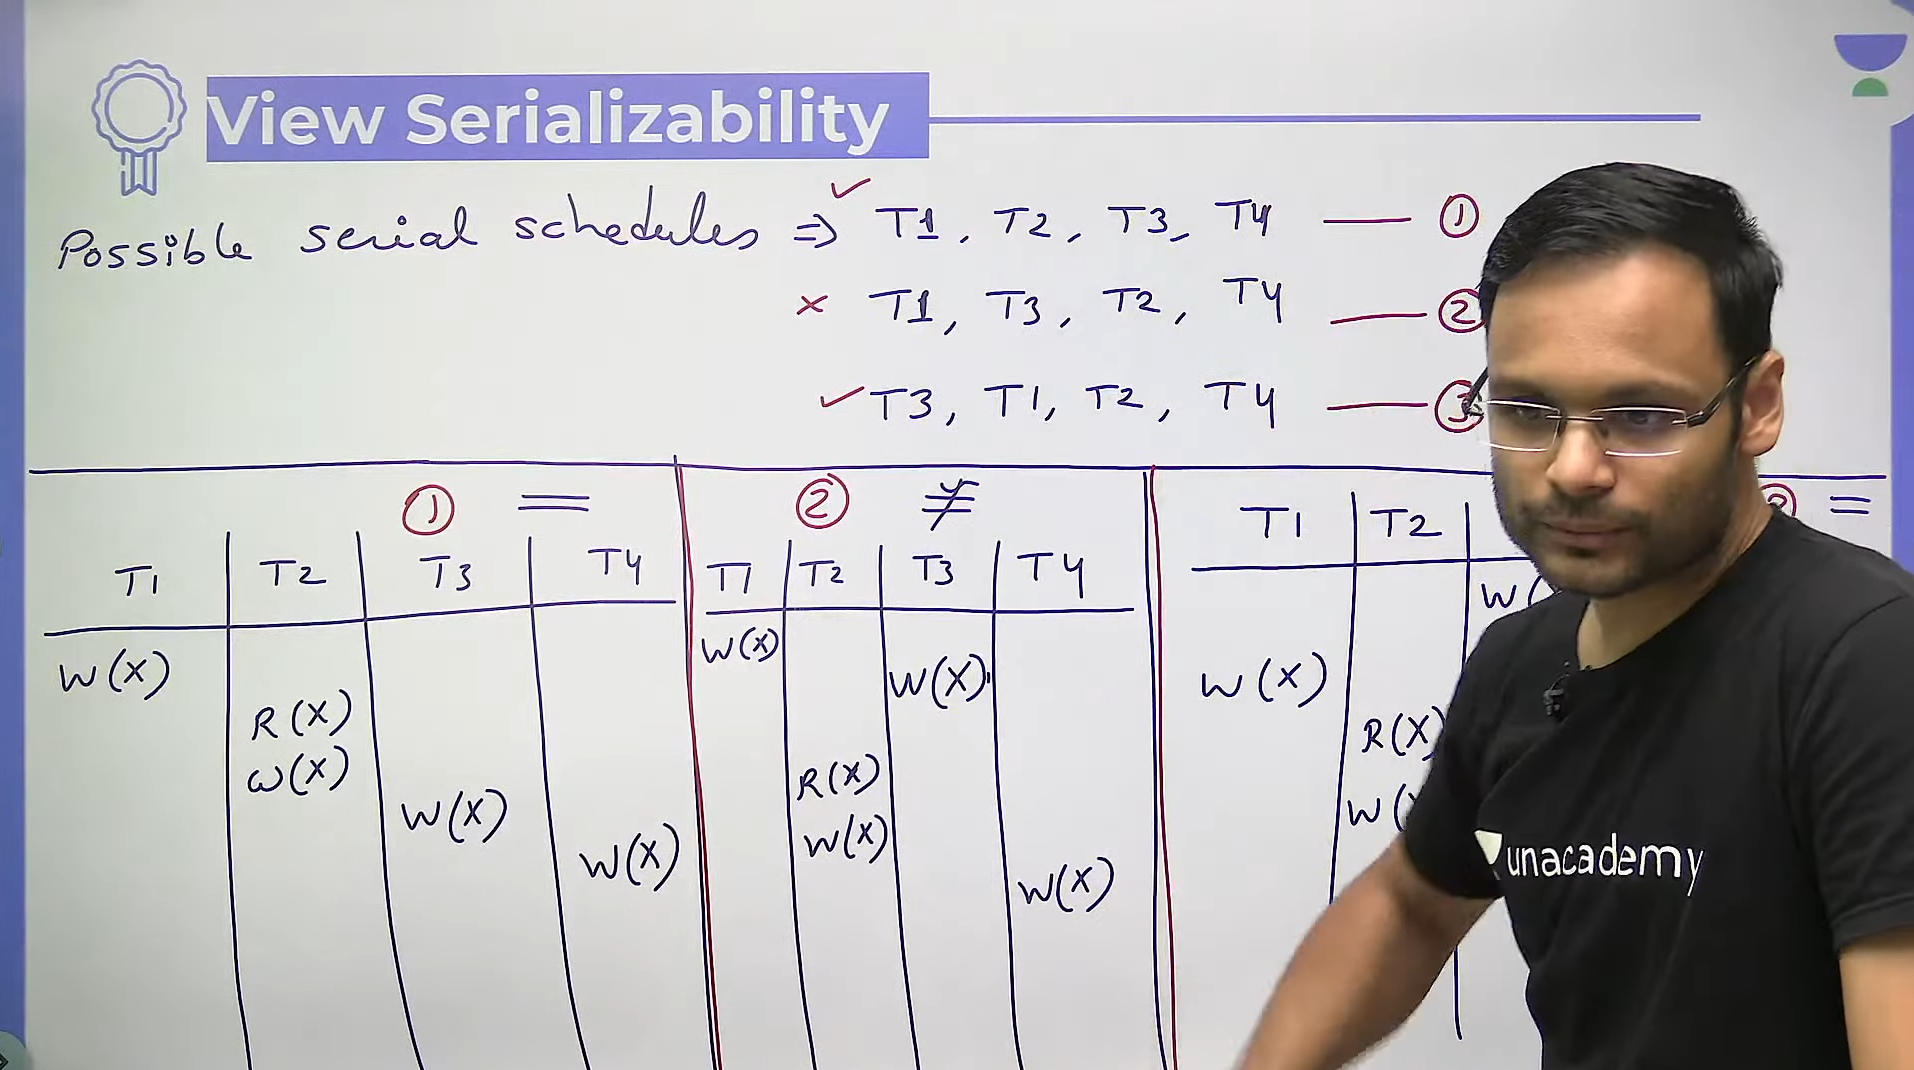 View Serializability
Possible serial schedules ⇒ ✓ T1, T2, T3, T4 — ①
× T1, T3, T2, T4 — ②
✓ T3, T1, T2, T4 — ③
① =
T1 T2 T3 T4
W(X)
R(X)
W(X)
W(X)
W(X)
② ≠
T1 T2 T3 T4
W(X)
W(X)
R(X)
W(X)
W(X)
=
T1 T2
W(
W(X)
R(X)
W(
unacademy